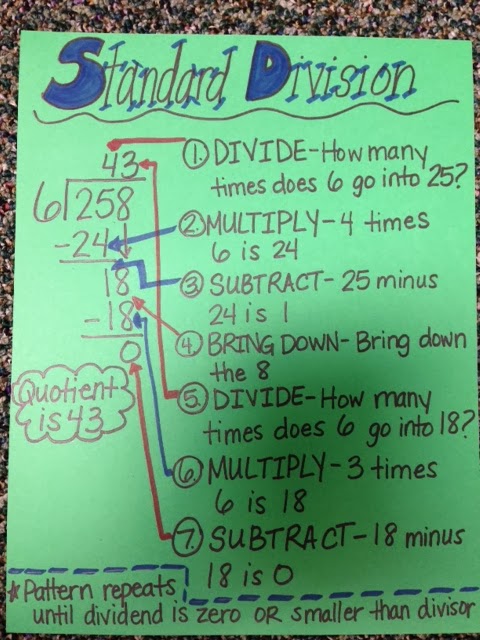 Standard Division
43
6)258
-24↓
18
-18
0
Quotient
is 43
①. DIVIDE-How many
times does 6 go into 25?
② MULTIPLY-4 times
6 is 24
③ SUBTRACT- 25 minus
24 is 1
④ BRING DOWN- Bring down
the 8
⑤. DIVIDE-How many
times does 6 go into 18?
⑥. MULTIPLY-3 times
6 is 18
⑦. SUBTRACT-18 minus
18 is 0
*Pattern repeats
until dividend is zero OR smaller than divisor